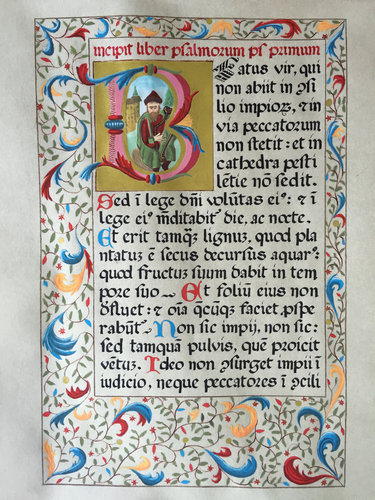 incipit liber psalmorum ps primum
BEatus vir, qui
non abiit in ꝯsi
lio impioꝝ, ⁊ in
via peccatorum
non stetit: et in
cathedra pesti
lētie nō sedit.
Sed ī lege dn̄i volūtas ei⁹: ⁊ ī
lege ei⁹ mditabit᷑ die, ac nocte.
Et erit tamqꝫ lignuꝫ, quod pla
ntatuꝫ ē secus decursus aquar⁹:
quod fructuꝫ suum dabit in tem
pore suo Et foliū eius non
dfluet: ⁊ oīa qcūqꝫ faciet ꝓspe
rabūt᷑ Non sic impij, non sic:
sed tamquā pulvis, quē proicit
vētuꝫ. Ideo non ꝯsurget impii ī
iudicio, neque peccatores ī ꝯcili